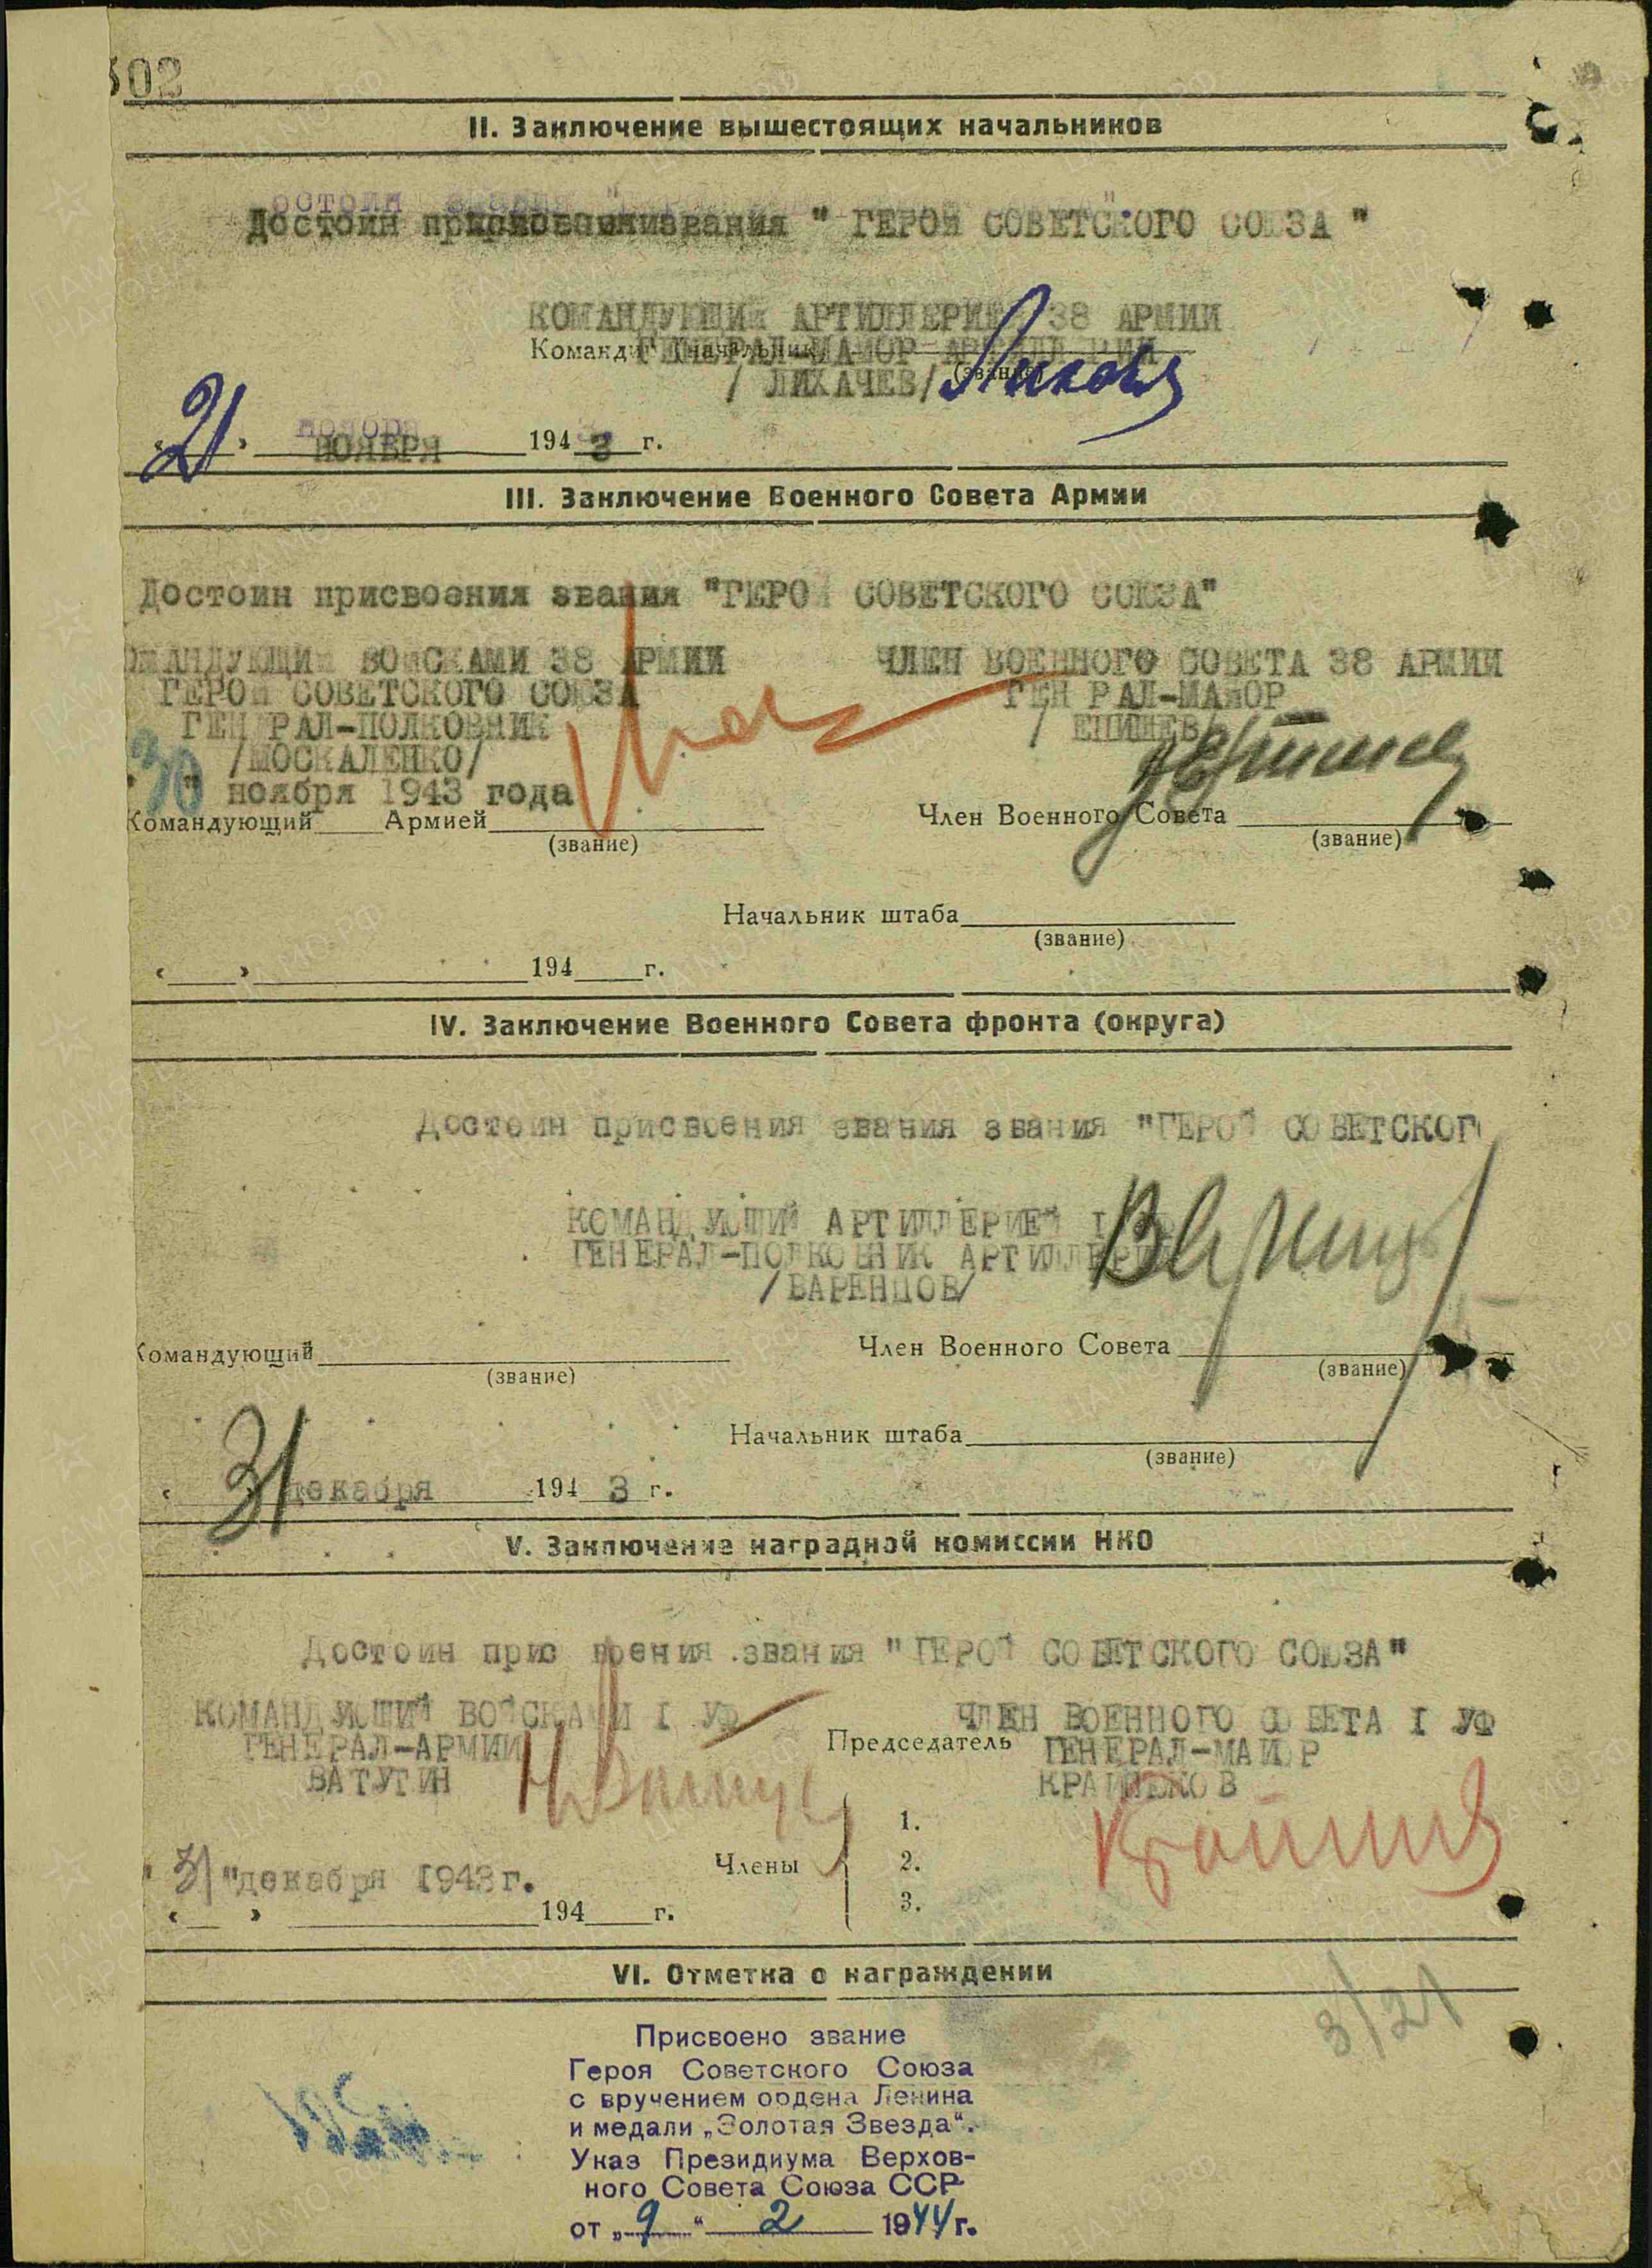 302
II. Заключение вышестоящих начальников
Достоин звания " ГЕРОЯ СОВЕТСКОГО СОЮЗА "
КОМАНДУЮЩИЙ АРТИЛЛЕРИЕЙ 38 АРМИИ
ГЕНЕРАЛ-МАЙОР АРТИЛЛЕРИИ
Командир (начальник)
(звание)
/ ЛИХАЧЕВ/
21 НОЯБРЯ 1943 г.
III. Заключение Военного Совета Армии
Достоин присвоения звания "ГЕРОЙ СОВЕТСКОГО СОЮЗА"
ОМАНДУЮЩИЙ ВОЙСКАМИ 38 АРМИИ
ГЕРОЙ СОВЕТСКОГО СОЮЗА
ГЕН РАЛ-ПОЛКОВНИК
/МОСКАЛЕНКО/
"30" ноября 1943 года
ЧЛЕН ВОЕННОГО СОВЕТА 38 АРМИИ
ГЕН РАЛ-МАЙОР
/ ЕПИШЕВ/
Командующий Армией
(звание)
Член Военного Совета
(звание)
Начальник штаба
(звание)
« » 194 г.
IV. Заключение Военного Совета фронта (округа)
Достоин присвоения звания звания "ГЕРОЙ СОВЕТСКОГ
КОМАНДУЮЩИЙ АРТИЛЛЕРИЕЙ I
ГЕНЕРАЛ-ПОЛКОВНИК АРТИЛЛЕРИИ
/ВАРЕНЦОВ/
Командующий
(звание)
Член Военного Совета
(звание)
Начальник штаба
(звание)
« 31 » декабря 1943 г.
V. Заключение наградной комиссии НКО
Достоин прис воения звания "ГЕРОЙ СОВЕТСКОГО СОЮЗА"
КОМАНДУЮЩИЙ ВОЙСКАМИ I УФ
ГЕНЕРАЛ-АРМИИ
ВАТУТИН
ЧЛЕН ВОЕННОГО СОВЕТА I УФ
Председатель
ГЕНЕРАЛ-МАЙОР
КРАЙНЮКОВ
Члены
1.
2.
3.
"31" декабря 1943г.
« » 194 г.
VI. Отметка о награждении
3/21
Присвоено звание
Героя Советского Союза
с вручением ордена Ленина
и медали „Золотая Звезда“.
Указ Президиума Верхов-
ного Совета Союза ССР
от „9“ 2 1944 г.